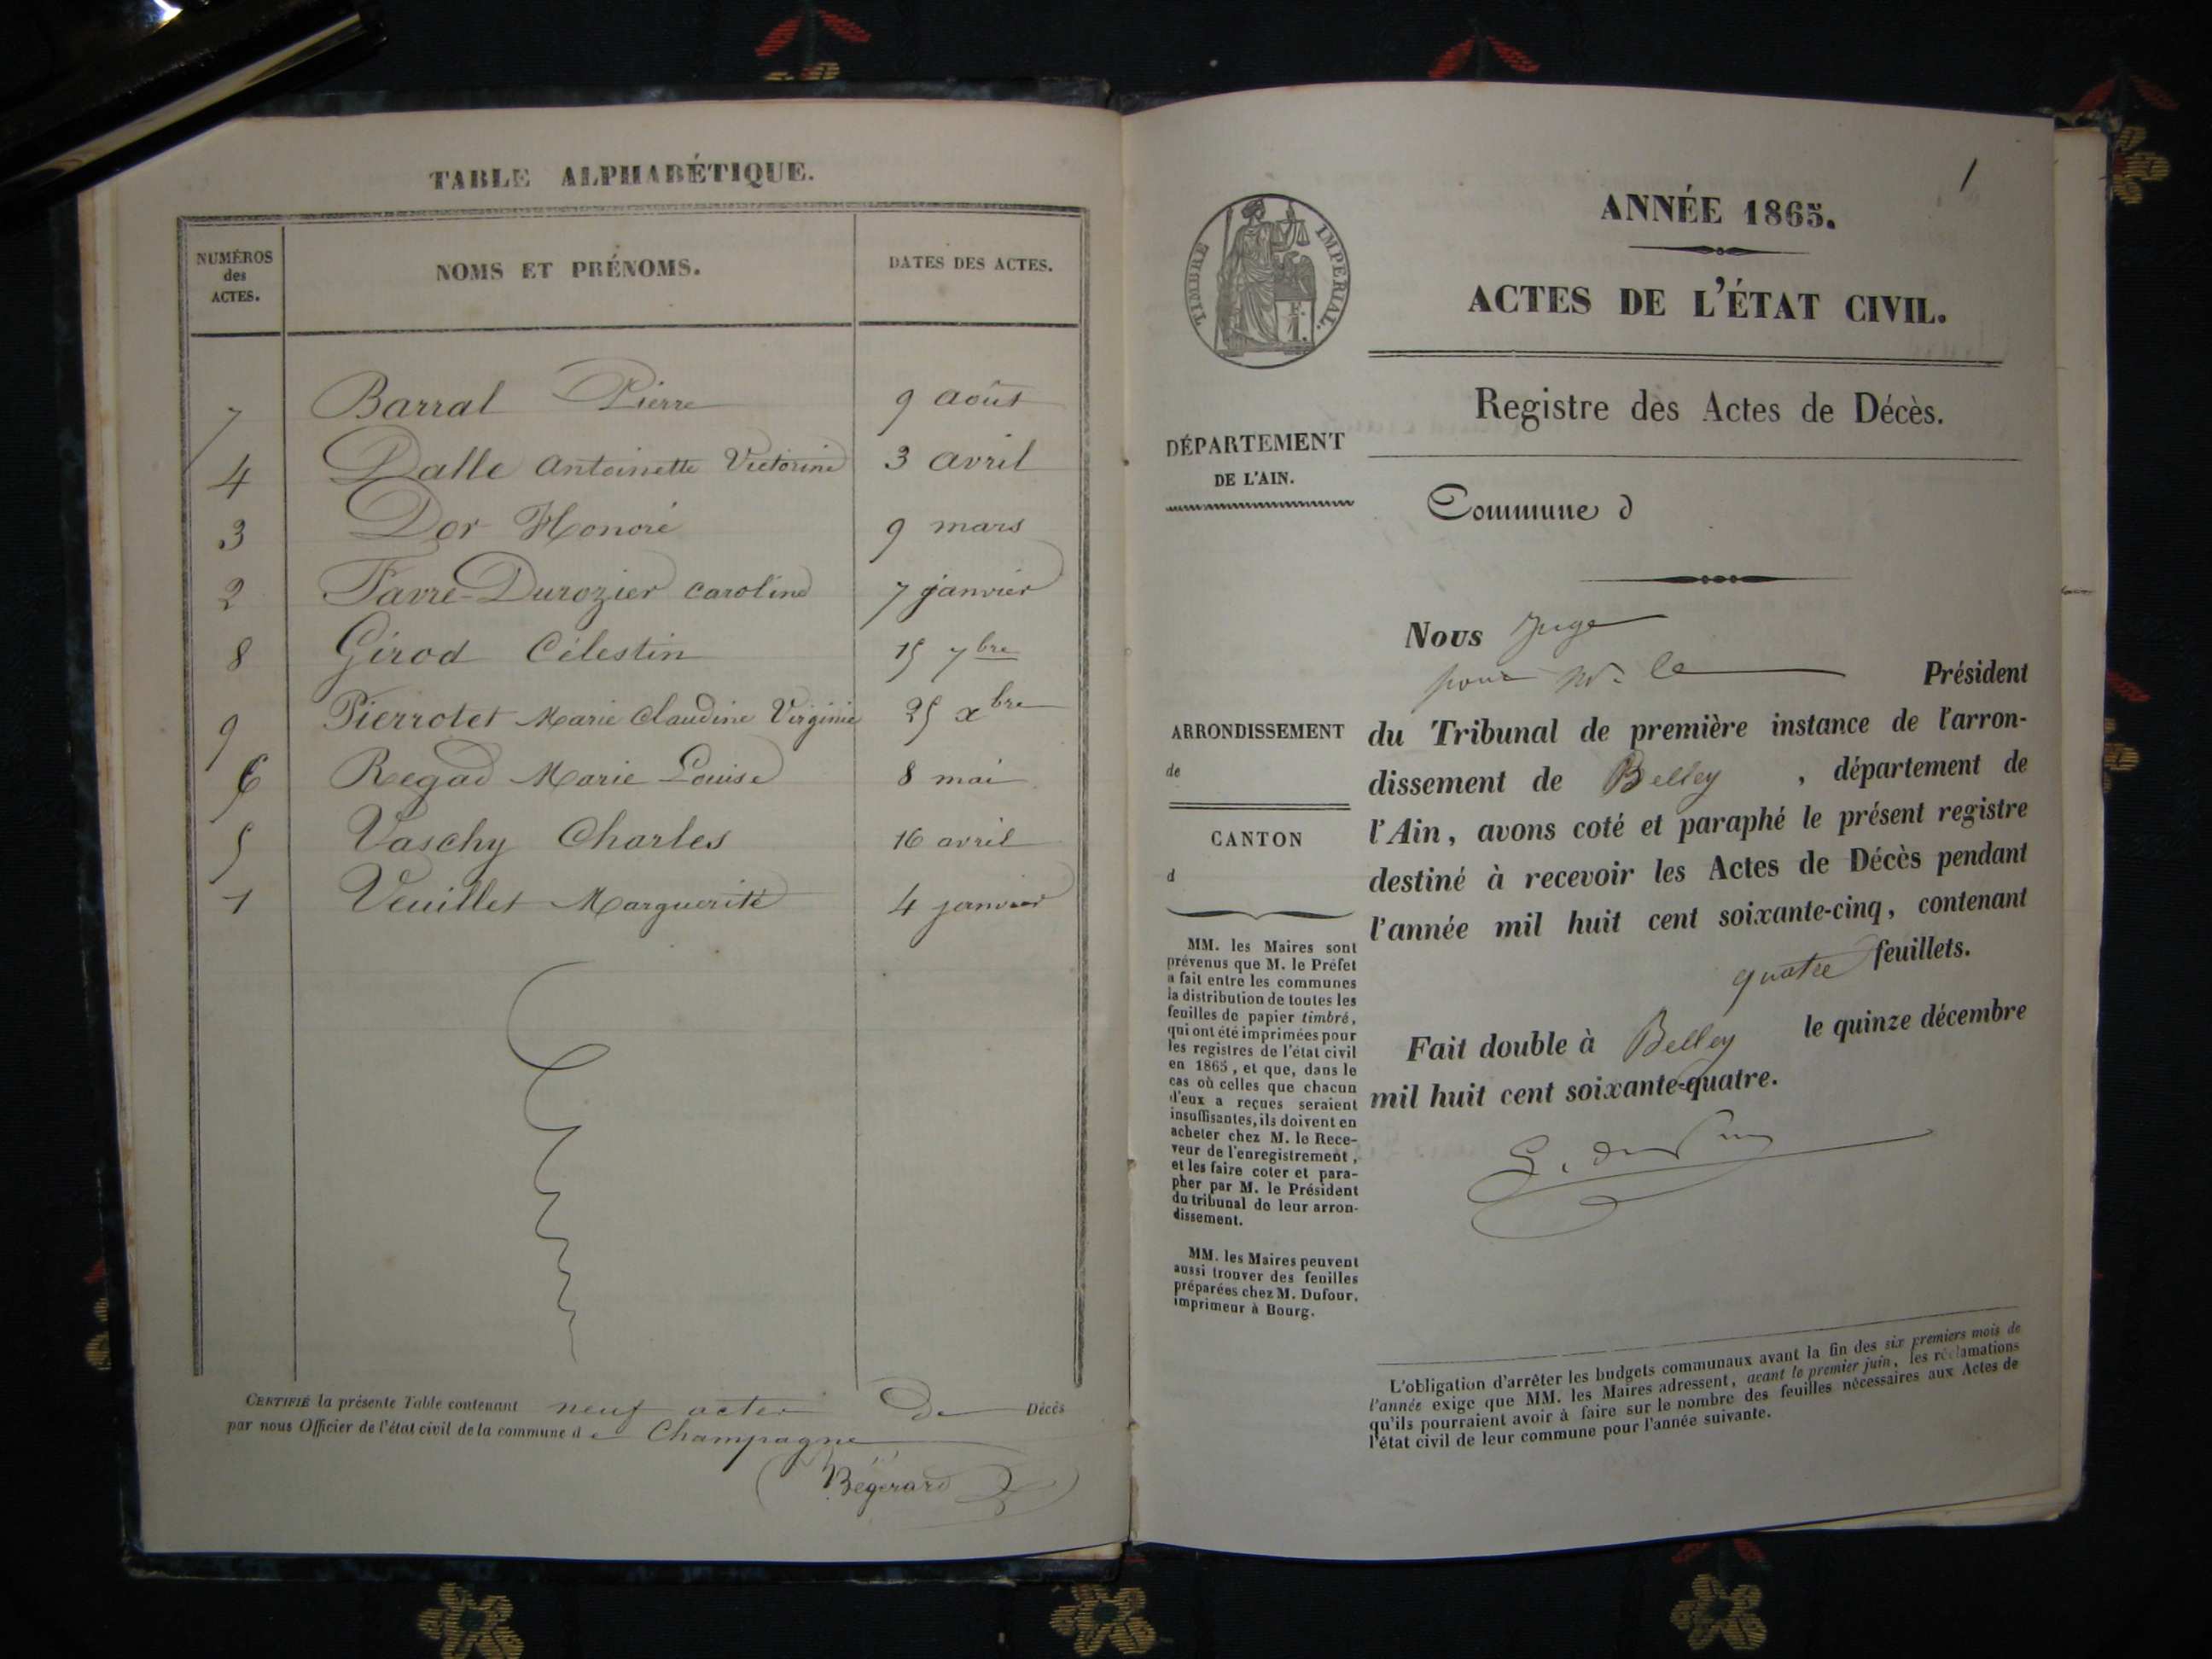 TABLE ALPHABÉTIQUE.
NUMÉROS des ACTES. NOMS ET PRÉNOMS. DATES DES ACTES.
7 Barral Pierre 9 août
4 Dalle Antoinette Victorine 3 avril
3 Dor Honoré 9 mars
2 Favre-Durozier Caroline 7 janvier
8 Girod Célestin 15 7bre
9 Pierrotet Marie Claudine Virginie 25 xbre
6 Regad Marie Louise 8 mai
5 Vaschy Charles 16 avril
1 Veuillet Marguerite 4 janvier
CERTIFIÉ la présente Table contenant neuf actes De Décès
par nous Officier de l'état civil de la commune de Champagne
Bégerard
1
TIMBRE IMPÉRIAL.
ANNÉE 1865.
ACTES DE L'ÉTAT CIVIL.
Registre des Actes de Décès.
DÉPARTEMENT
DE L'AIN.
Commune d
Nous Juge
pour M. le Président
ARRONDISSEMENT
de
CANTON
d
du Tribunal de première instance de l'arron-
dissement de Belley , département de
l'Ain, avons coté et paraphé le présent registre
destiné à recevoir les Actes de Décès pendant
l'année mil huit cent soixante-cinq, contenant
quatre feuillets.
Fait double à Belley le quinze décembre
mil huit cent soixante-quatre.
MM. les Maires sont
prévenus que M. le Préfet
a fait entre les communes
la distribution de toutes les
feuilles de papier timbré,
qui ont été imprimées pour
les registres de l'état civil
en 1865, et que, dans le
cas où celles que chacun
d'eux a reçues seraient
insuffisantes, ils doivent en
acheter chez M. le Rece-
veur de l'enregistrement,
et les faire coter et para-
pher par M. le Président
du tribunal de leur arron-
dissement.
MM. les Maires peuvent
aussi trouver des feuilles
préparées chez M. Dufour,
imprimeur à Bourg.
L'obligation d'arrêter les budgets communaux avant la fin des six premiers mois de
l'année exige que MM. les Maires adressent, avant le premier juin, les réclamations
qu'ils pourraient avoir à faire sur le nombre des feuilles nécessaires aux Actes de
l'état civil de leur commune pour l'année suivante.